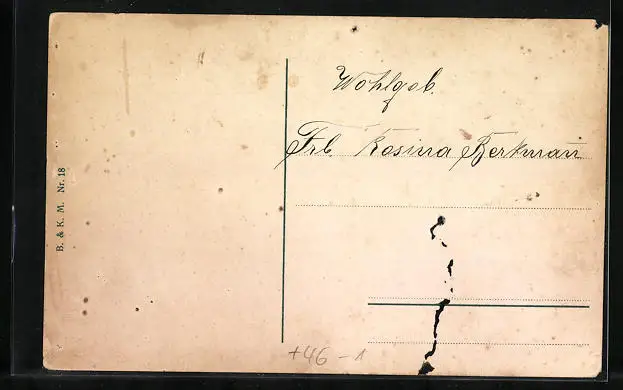 Wohlgeb.
Frl. Rosina Berkman
B. & K. M. Nr. 18
+46 -1